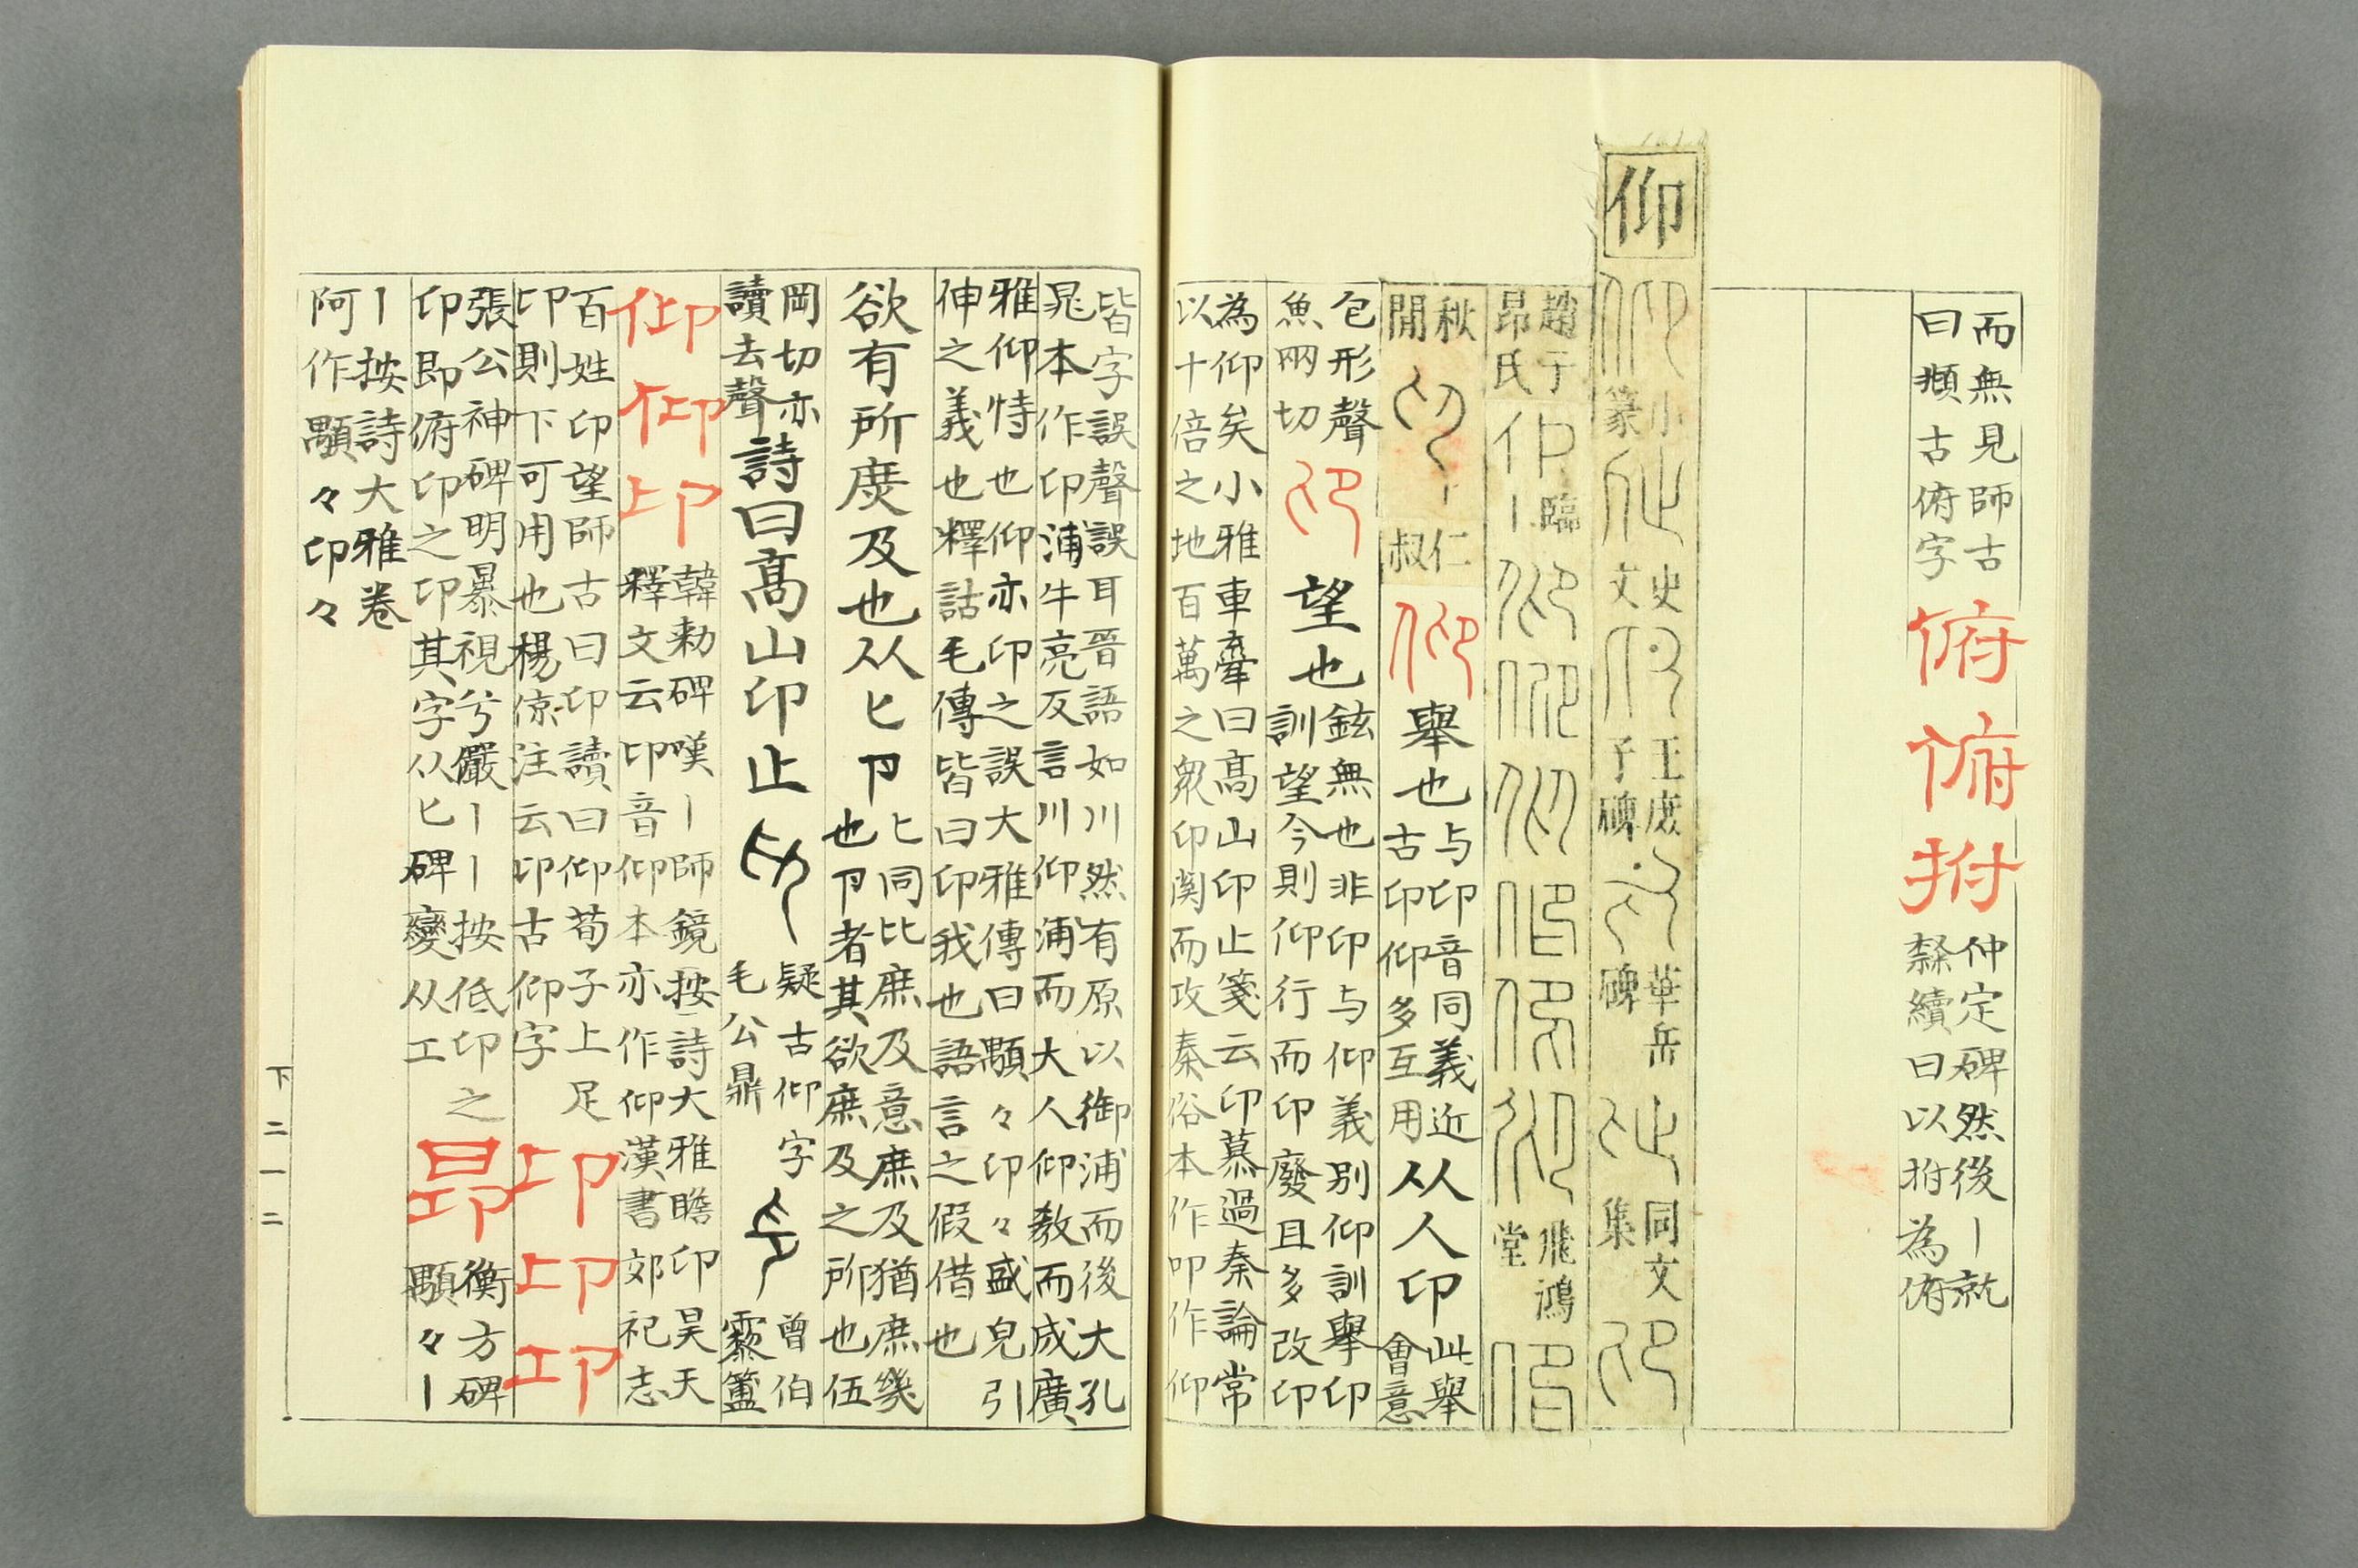 而無見師古
曰頫古俯字
俯俯拊
仲定碑然後丨就
隸續曰以拊為俯
仰
小篆
史文
王庶子碑
華岳碑
同文集
趙子昂氏
臨丨
飛鴻堂
秋閒
丨仁叔
仰舉也
与卬音同義近
古卬仰多互用
从人卬
此舉會意
包形聲
魚兩切
卬望也
鉉無也非卬与仰義別仰訓舉卬
訓望今則仰行而卬廢且多改卬
為仰矣小雅車舝曰高山卬止箋云卬慕過秦論常
以十倍之地百萬之衆卬関而攻秦俗本作叩作仰
皆字誤聲誤耳晉語如川然有原以卸浦而後大孔
晁本作卬浦牛亮反言川仰浦而大人仰教而成廣
雅仰恃也仰亦卬之誤大雅傳曰顒々卬々盛皃引
伸之義也釋詁毛傳皆曰卬我也語言之假借也
欲有所庶及也从匕卪
匕同比庶及意庶及猶庶幾
也卪者其欲庶及之所也伍
岡切亦
讀去聲
詩曰高山卬止
疑古仰字
毛公鼎
曾伯
藜簠
仰仰卬
韓勑碑嘆丨師鏡按詩大雅瞻卬昊天
釋文云卬音仰本亦作仰漢書郊祀志
百姓卬望師古曰卬讀曰仰荀子上足
卬則下可用也楊倞注云卬古仰字
卬卬卬
張公神碑明㬥視兮儼丨丨按低卬之
卬即俯卬之卬其字从匕碑變从工
昂
衡方碑
顒々丨
丨按詩大雅卷
阿作顒々卬々
下二一二